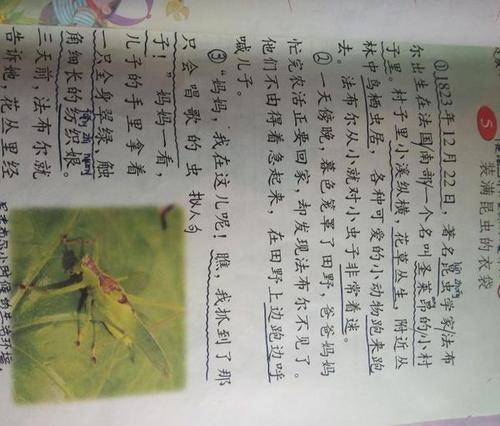 5 装满昆虫的衣袋
①1823年12月22日，著名昆虫学家法布
尔出生在法国南部一个名叫圣莱昂的小村
子里。村子里小溪纵横，花草丛生，附近丛
林中鸟栖虫居，各种可爱的小动物跑来跑
去。法布尔从小就对小虫子非常着迷。
②一天傍晚，暮色笼罩了田野，爸爸妈妈
忙完农活正要回家，却发现法布尔不见了。
他们不由得着急起来，在田野上边跑边呼
喊儿子。
③“妈妈，我在这儿呢！瞧，我抓到了那
只会唱歌的虫 拟人句
子！”妈妈一看，
儿子的手里拿着
一只全身翠绿、触
角细长的纺织娘。
三天前，法布尔就
告诉她，花丛里经